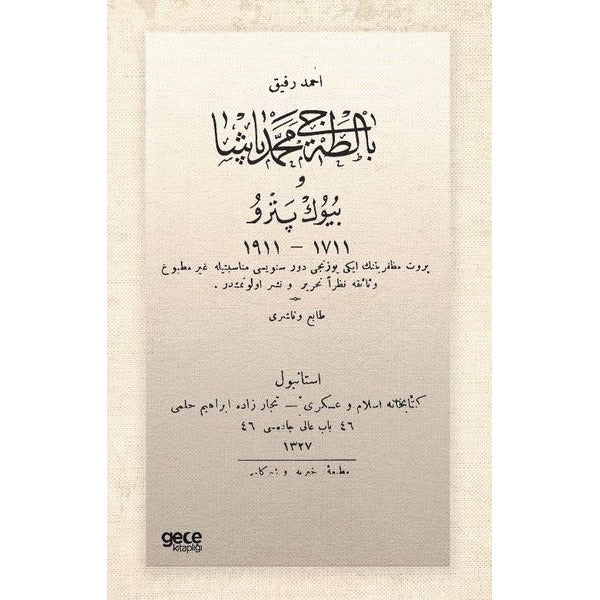 احمد رفيق
بالطه‌جى محمد پاشا
و
بيوك پترو
١٧١١ – ١٩١١
پروت مظفرياتنك ايكى يوزنجى دور سنويسى مناسبتيله غير مطبوع
وثائقه نظراً تحرير و نشر اولونمشدر .
طابع و ناشرى
استانبول
كتابخانه اسلام و عسكرى – تجار زاده ابراهيم حلمى
٤٦ باب عالى جاده‌سى ٤٦
١٣٢٧
مطبعهٔ خيريه و شركاسى
gece
kitaplığı